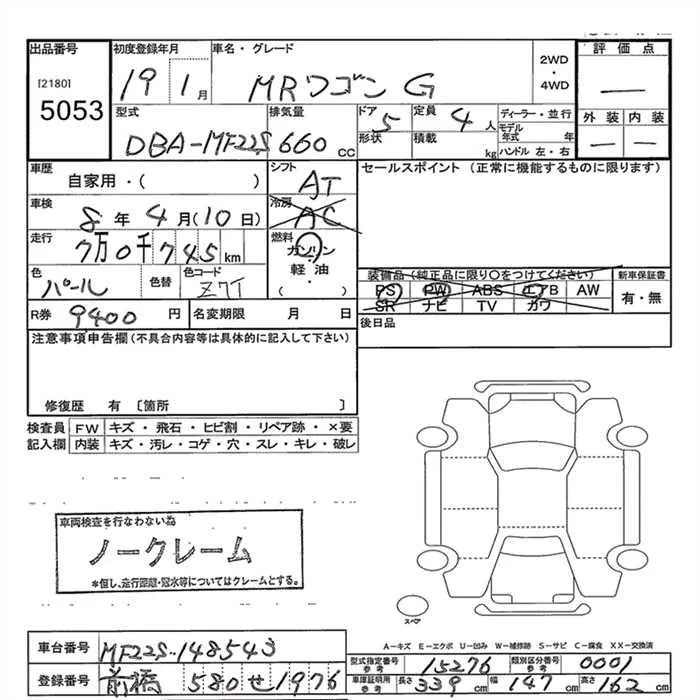 出品番号
[2180]
5053
初度登録年月
19 1月
車名・グレード
MRワゴン G
2WD・4WD
評価点
—
外装 内装
— —
型式
DBA-MF22S
排気量
660 cc
ドア 5
形状
定員 4人
積載 kg
ディーラー・並行
モデル年式 年
ハンドル 左・右
車歴
自家用・( )
シフト
AT
冷房
AC
セールスポイント (正常に機能するものに限ります)
車検
8年4月(10日)
走行
7万0千745km
燃料
ガソリン
軽油
・
( )
色
パール
色替
色コード
Z7T
装備品(純正品に限り○をつけてください)
PS PW ABS エアB AW
SR ナビ TV カワ
新車保証書
有・無
R券 9400円
名変期限 月 日
後日品
注意事項申告欄(不具合内容等は具体的に記入して下さい)
修復歴 有 〔箇所 〕
検査員記入欄
FW キズ・飛石・ヒビ割・リペア跡・×要
内装 キズ・汚レ・コゲ・穴・スレ・キレ・破レ
車両検査を行なわない為
ノークレーム
*但し、走行距離・冠水等についてはクレームとする。
スペア
A-キズ E-エクボ U-凹み W-補修跡 S-サビ C-腐食 XX-交換済
車台番号 MF22S-148543
登録番号 前橋 580 せ 1976
型式指定番号 参考 15276
類別区分番号 参考 0001
車庫証明用 参考 長さ 339cm 幅 147cm 高さ 162cm